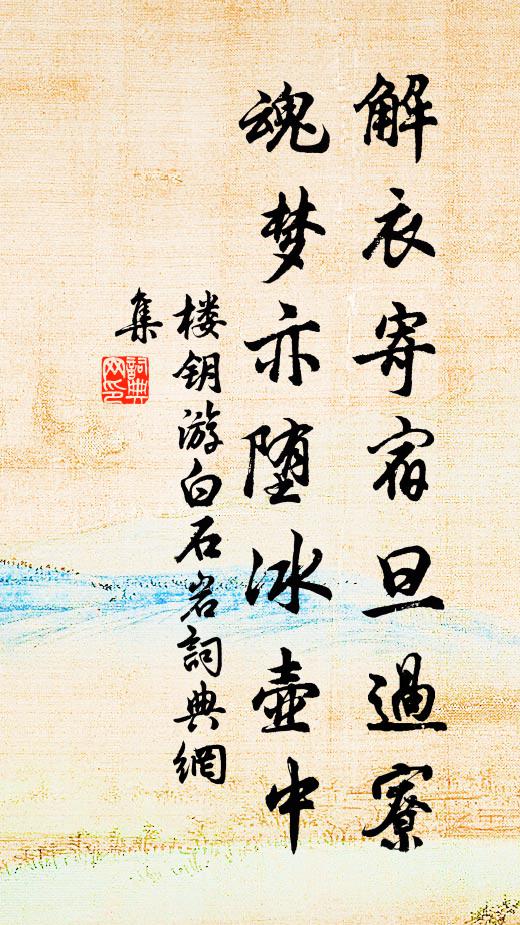 解衣寄宿旦過寮
魂梦亦堕冰壶中
楼钥游白石岩詞典網
集
詞典网印